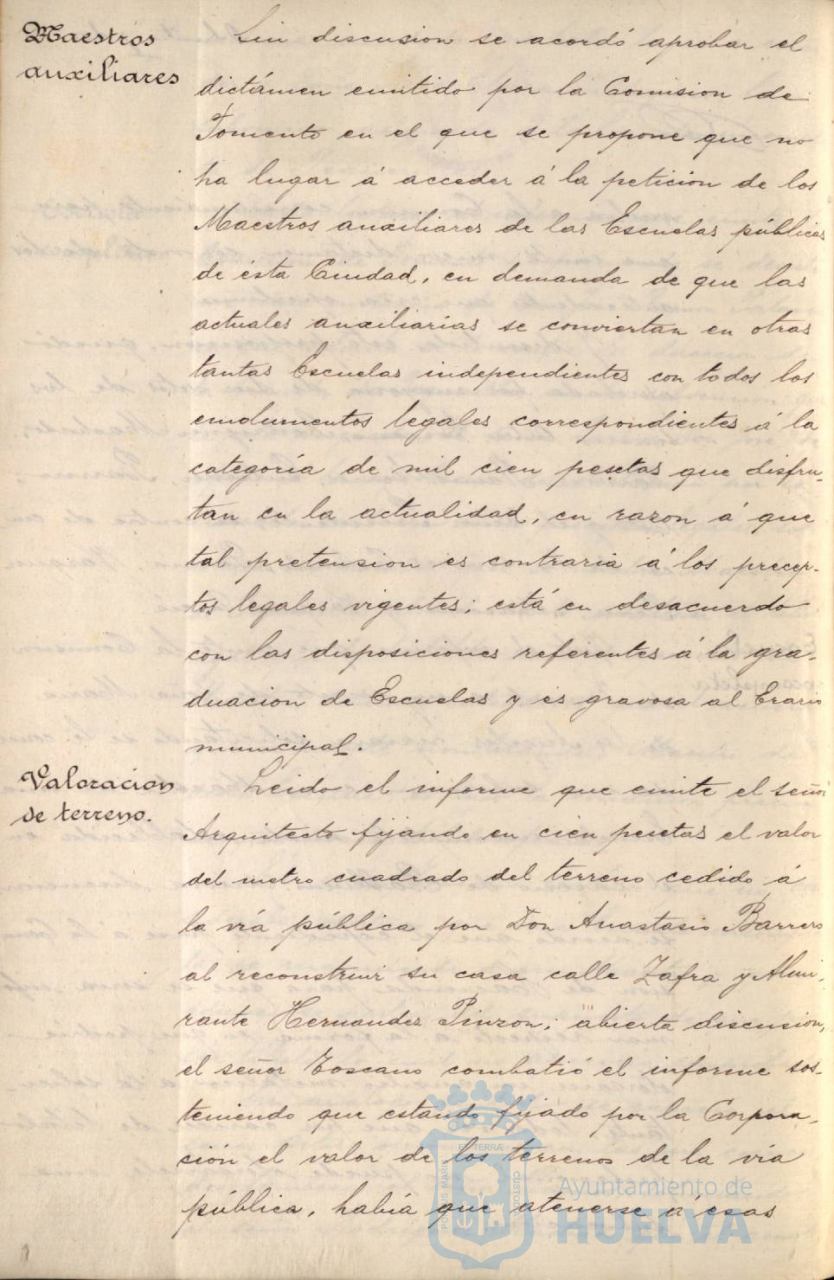 Maestros
auxiliares
Sin discusion se acordó aprobar el
dictámen emitido por la Comision de
Fomento en el que se propone que no
ha lugar á acceder á la peticion de los
Maestros auxiliares de las Escuelas públicas
de ésta Ciudad, en demanda de que las
actuales auxiliarias se conviertan en otras
tantas Escuelas independientes con todos los
emolumentos legales correspondientes á la
categoría de mil cien pesetas que disfru-
tan en la actualidad, en razon á que
tal pretension es contraria á los precep-
tos legales vigentes; está en desacuerdo
con las disposiciones referentes á la gra-
duacion de Escuelas y es gravosa al Erario
municipal.
Valoracion
de terreno.
Leido el informe que emite el señor
Arquitecto fijando en cien pesetas el valor
del metro cuadrado del terreno cedido á
la vía pública por Don Anastasio Barrero
al reconstruir su casa calle Zafra y Almi-
rante Hernandez Pinzon; abierta discusion,
el señor Toscano combatió el informe sos-
teniendo que estando fijado por la Corpora-
ción el valor de los terrenos de la vía
pública, había que atenerse á esas
Ayuntamiento de
HUELVA